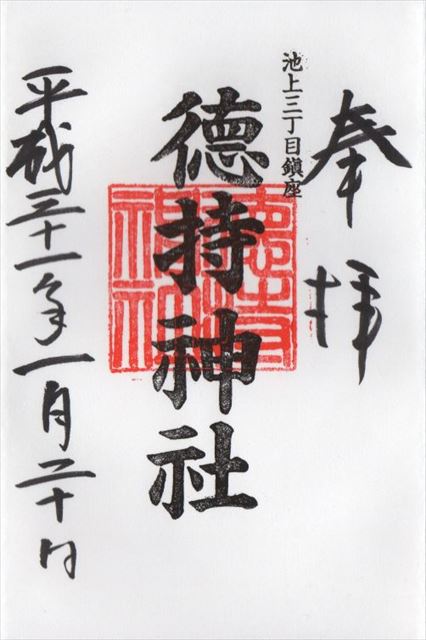 奉拝
池上三丁目鎮座
徳持神社
平成三十一年一月二十日